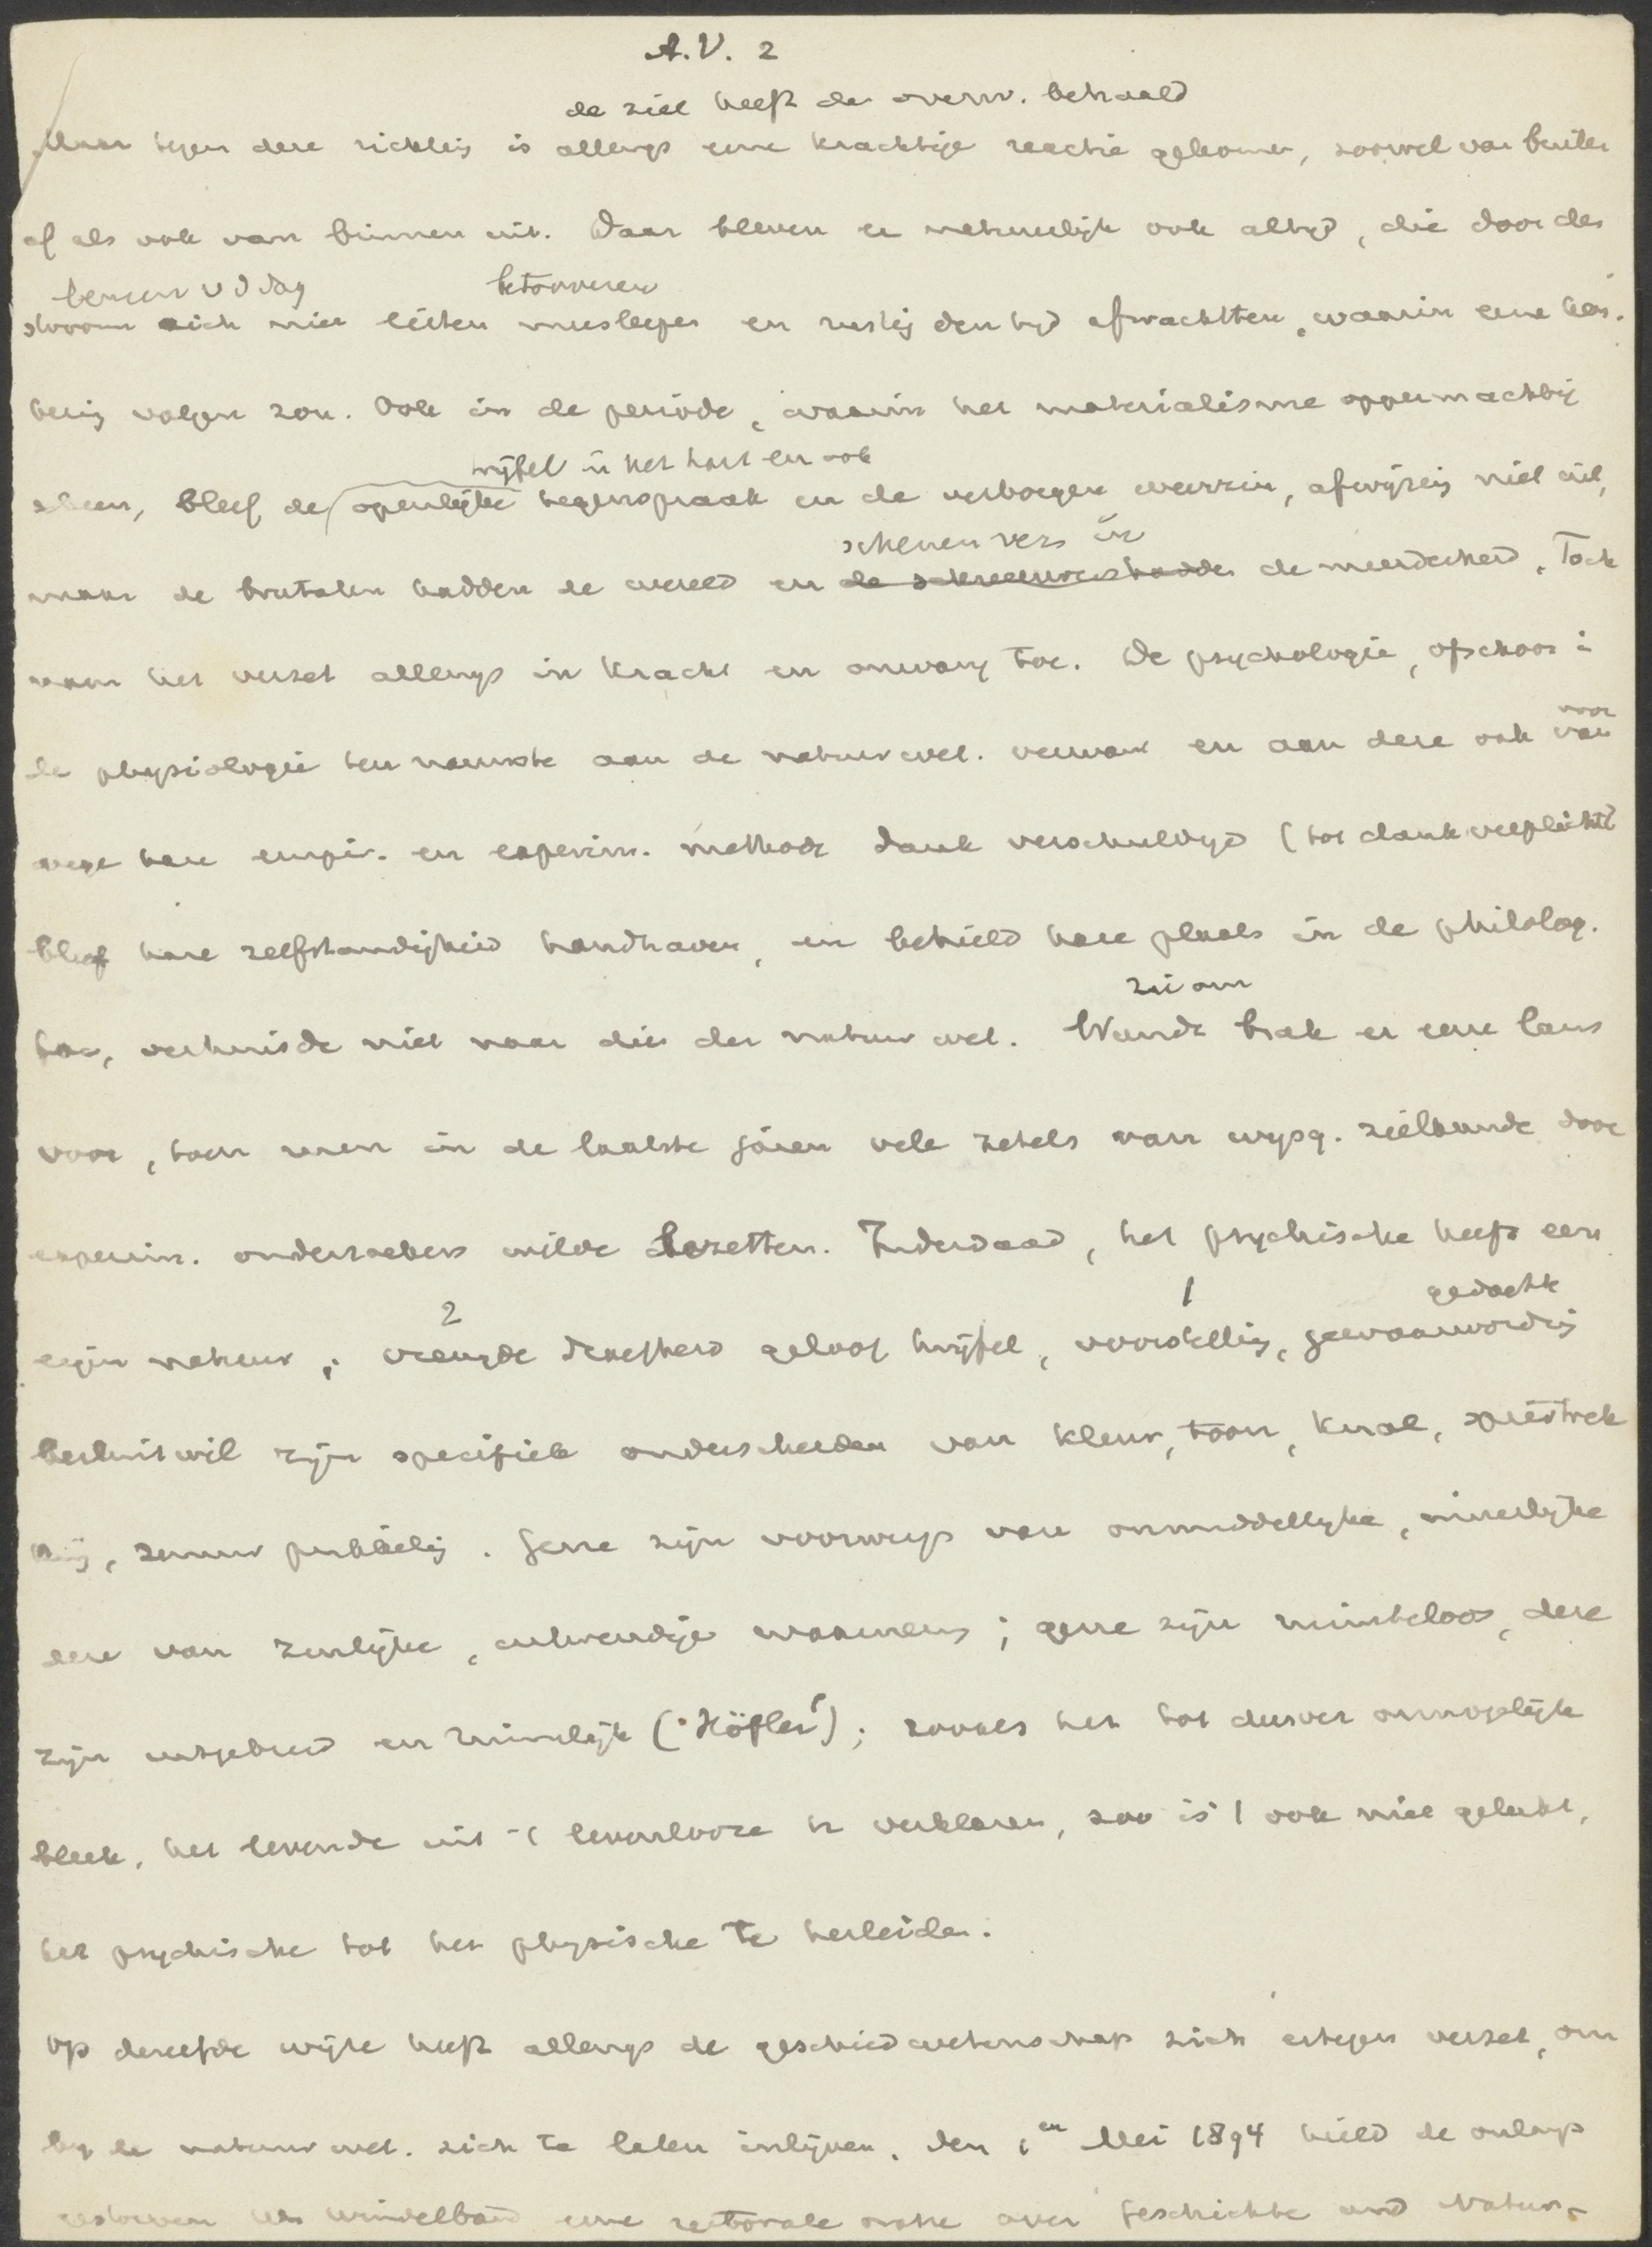 A.V. 2
de ziel heeft de overw. behaald
Maar tegen deze richting is allengs eene krachtige reactie gekomen, zoowel van buiten
af als ook van binnen uit. Daar bleven er natuurlijk ook altijd, die door den
betooveren
stroom zich niet lieten meesleepen en rustig den tijd afwachtten, waarin eene ken-
tering volgen zou. Ook in de periode, waarin het materialisme oppermachtig
twijfel in het hart en ook
scheen, bleef de openlijke tegenspraak en de verborgen weerzin, afwijzing niet uit,
schenen vers in
maar de brutalen hadden de wereld en de schreeuwers hadden de meerderheid. Toch
nam het verzet allengs in kracht en omvang toe. De psychologie, ofschoon in
voor
de physiologie ten nauwste aan de natuurwet. verwant en aan deze ook van
wege hare empir. en experim. methode dank verschuldigd (tot dank verplicht
bleef hare zelfstandigheid handhaven, en behield hare plaats in de philolog.
fac, verhuisde niet naar die der natuurwet. Wundt brak er eene lans
voor, toen men in de laatste jaren vele zetels van wijsg. zielkunde door
experim. onderzoekers wilde bezetten. Inderdaad, het psychische heeft een
2 1 gedachte
eigen natuur; vreugde droefheid geloof twijfel, voorstelling, gewaarwording
besluit wil zijn specifiek onderscheiden van kleur, toon, knal, spiertrek
king, zenuw prikkeling. Gene zijn voorwerp van onmiddellijke, innerlijke
deze van zinlijke, uitwendige waarneming; gene zijn ruimteloos, deze
zijn uitgebreid en ruimtelijk (Höfler); zooals het tot dusver onmogelijk
bleek, het levende uit 't levenlooze te verklaren, zoo is 't ook niet gelukt,
het psychische tot het physische te herleiden.
Op dezelfde wijze heeft allengs de geschiedwetenschap zich ertegen verzet, om
bij de natuurwet. zich te laten inlijven. Den 1en Mei 1894 hield de onlangs
gestorven Windelband eene rectorale oratie over Geschichte und Natur-